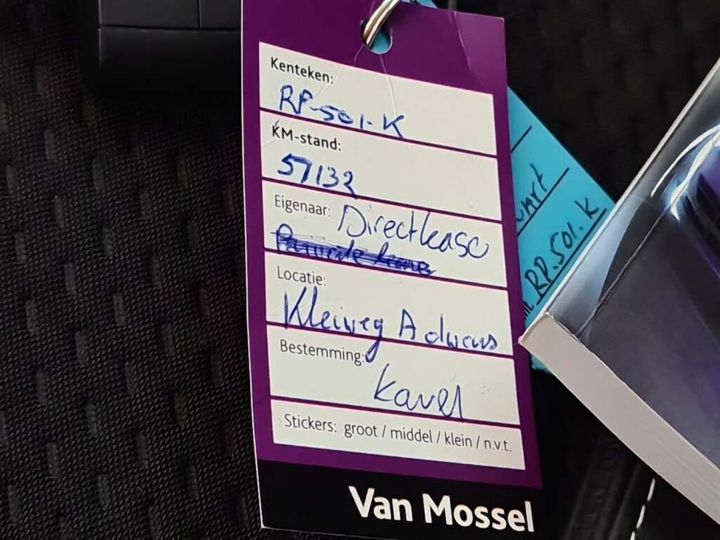 Kenteken:
RP-501-K
KM-stand:
57132
Eigenaar: Directlease
Locatie:
Kleiweg
Bestemming:
Kavel
Stickers: groot / middel / klein / n.v.t.
Van Mossel
RP.501.K